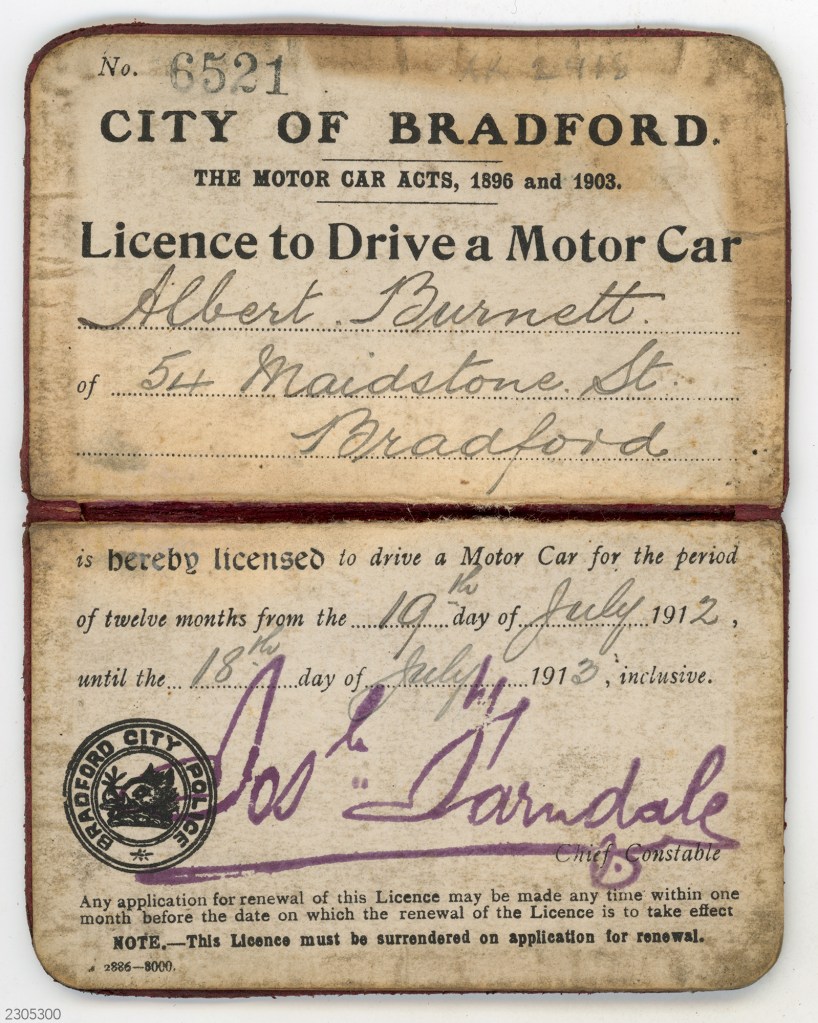 No. 6521
CITY OF BRADFORD.
THE MOTOR CAR ACTS, 1896 and 1903.
Licence to Drive a Motor Car
Albert Burnett
of 54 Maidstone St
Bradford
is hereby licensed to drive a Motor Car for the period
of twelve months from the 19th day of July 1912,
until the 18th day of July 1913, inclusive.
Josh Farndale
BRADFORD CITY POLICE
Chief Constable
Any application for renewal of this Licence may be made any time within one
month before the date on which the renewal of the Licence is to take effect
NOTE.—This Licence must be surrendered on application for renewal.
2886—8000.
2305300